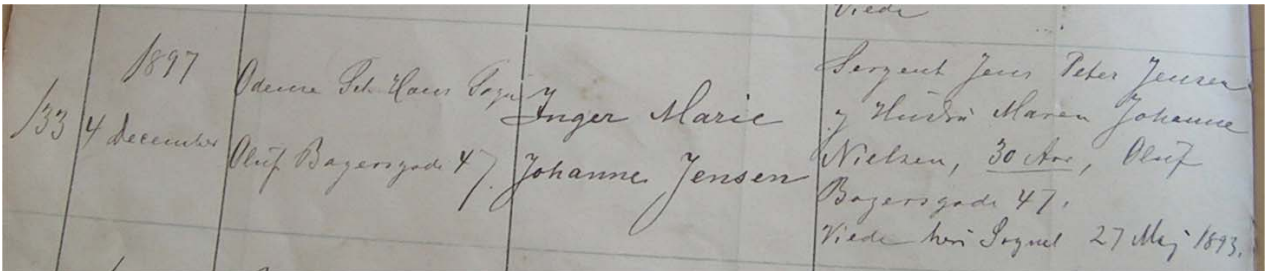 Viede
133
1897
4 December
Odense Sct. Hans Sogn
Oluf Bagersgade 47.
Inger Marie
Johanne Jensen
Sergent Jens Peter Jensen
og Hustru Maren Johanne
Nielsen, 30 Aar, Oluf
Bagersgade 47.
Viede her i Sognet 27 Maj 1893.